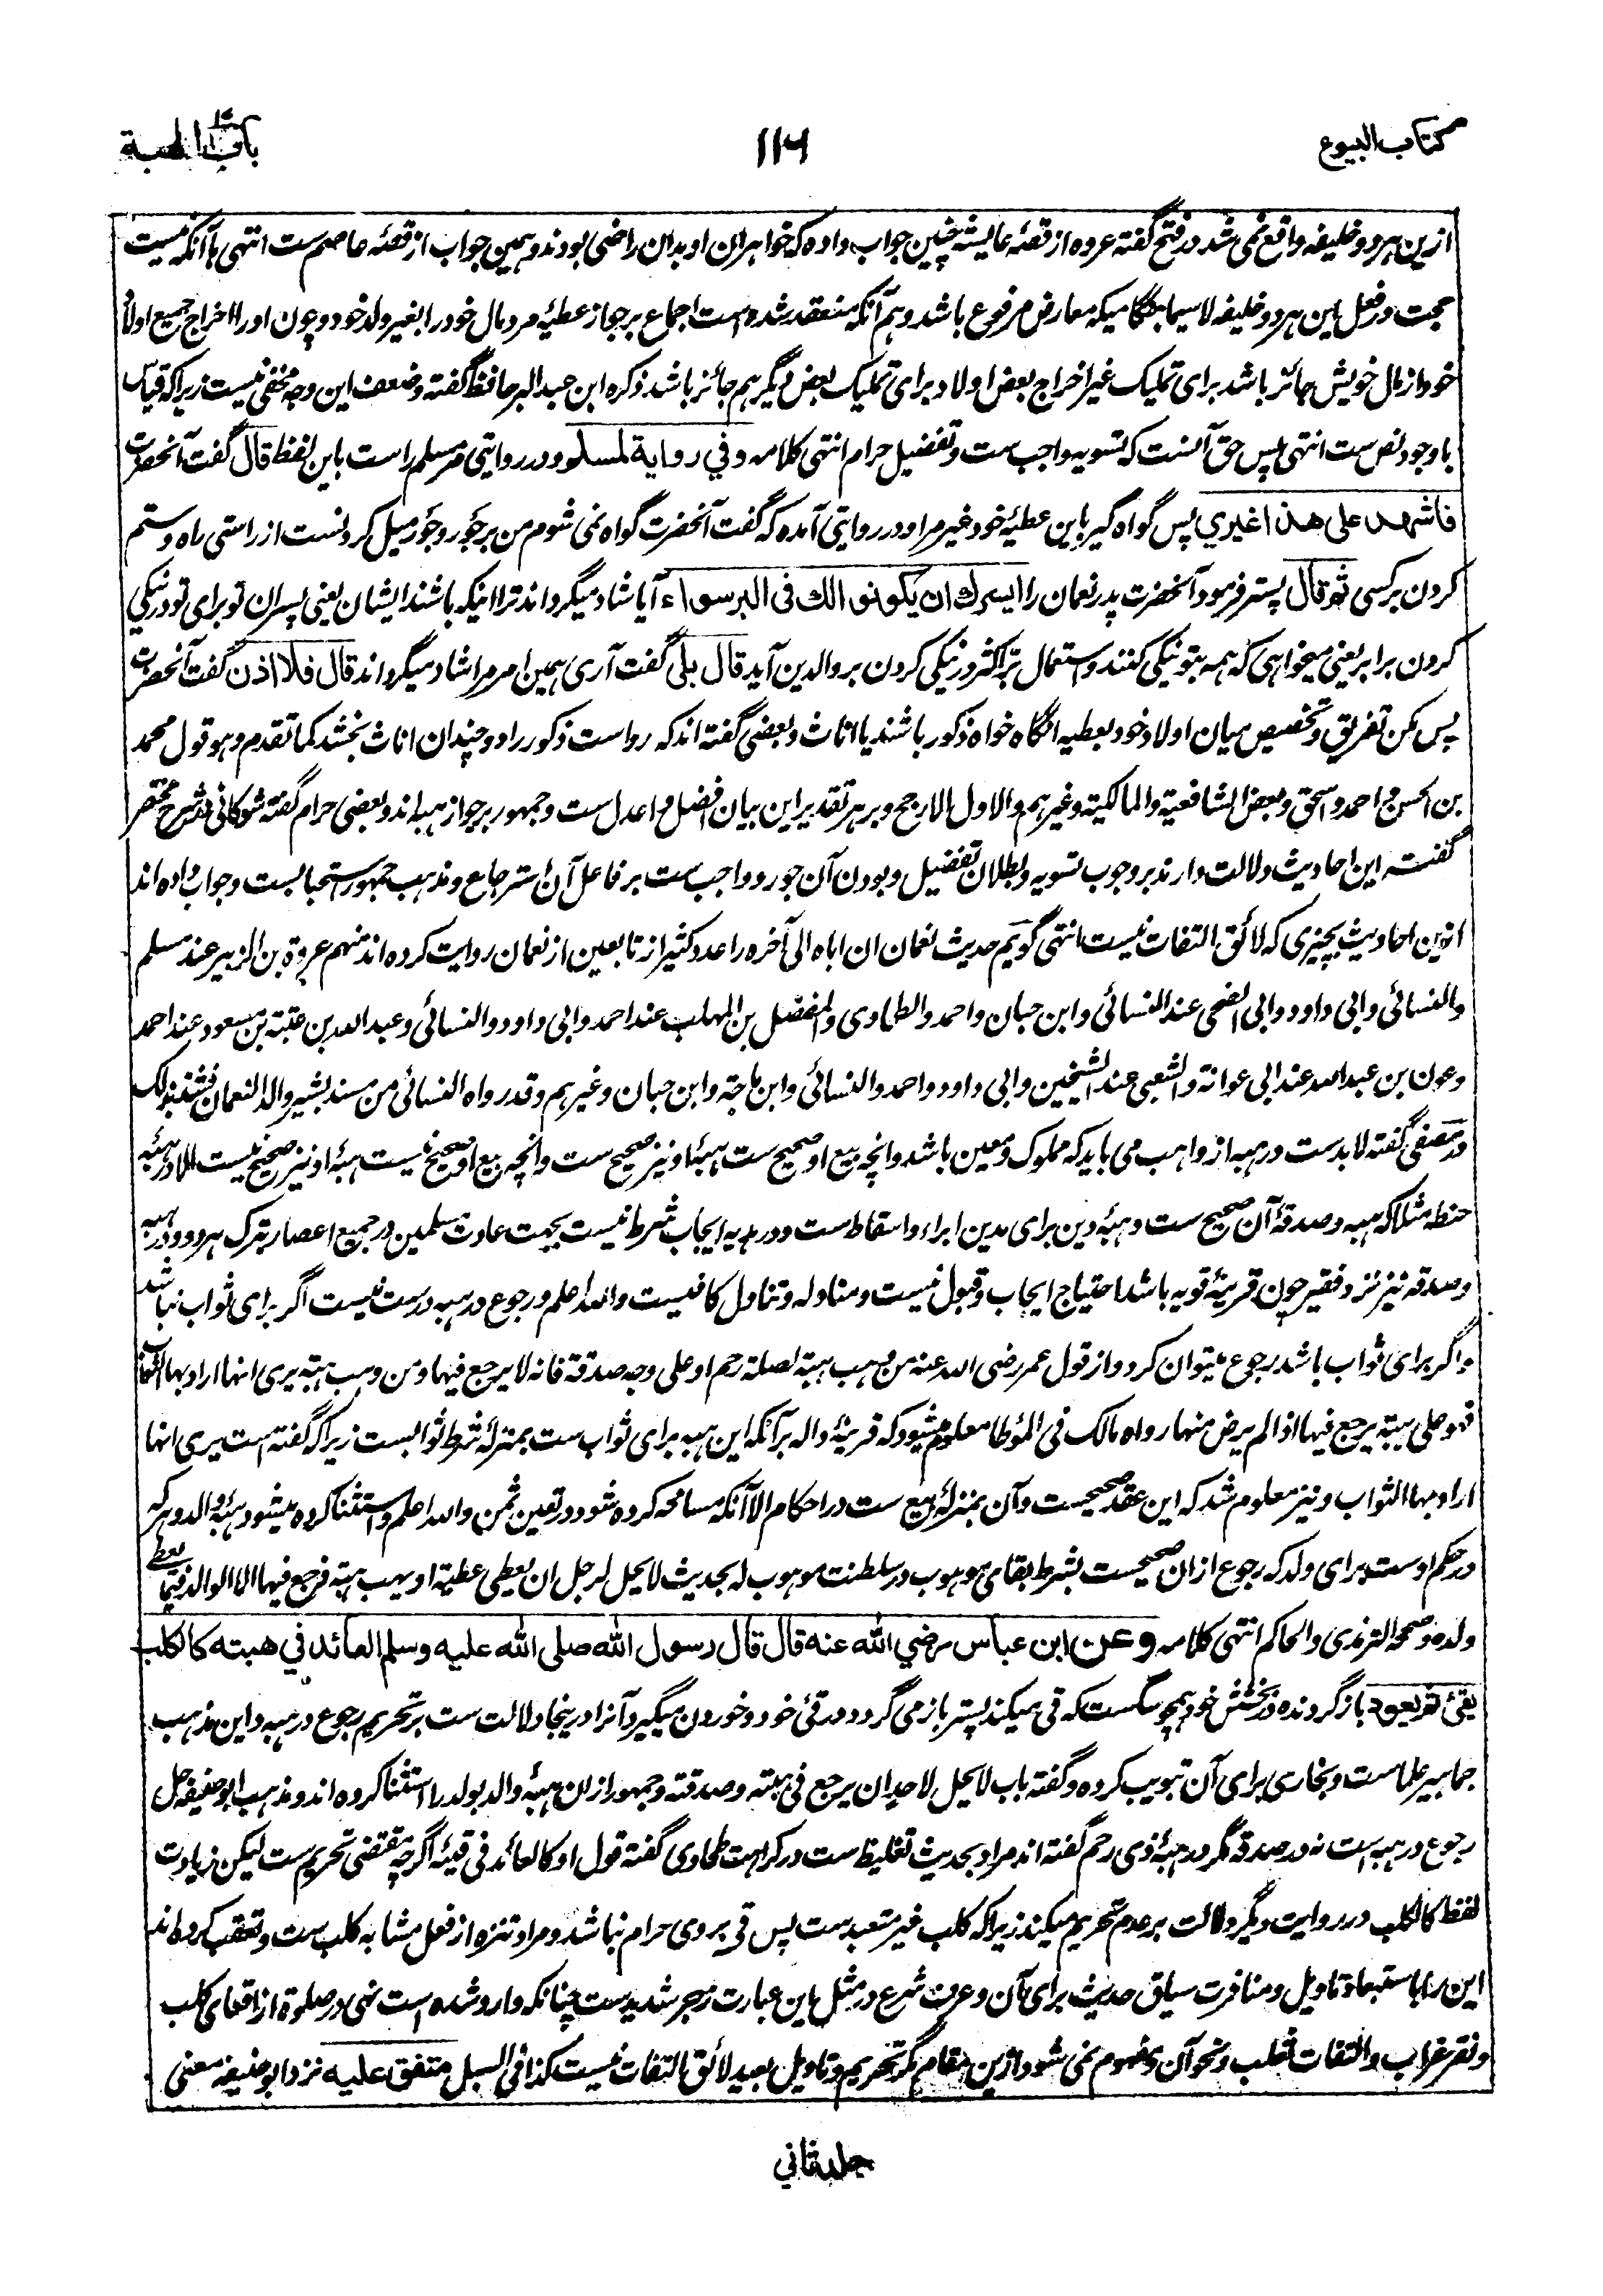 کتاب البیوع
۱۱۶
باب الهبة
ازین هر دو خلیفه واقع نمی شد در فتح گفته عروه از قصۀ عایشه چنین جواب داده که خواهران او بدان راضی بودند و همین جواب از قصۀ عاصم ست انتهی با آنکه نیست
حجت در فعل این هر دو خلیفه لا سیما هنگامیکه معارض مرفوع باشد و هم آنکه منعقد شده است اجماع بر جواز عطیۀ مرد مال خود را بغیر ولد خود و چون او را اخراج جمیع اولاد
خود از مال خویش جائز باشد برای تملیک غیر اخراج بعض اولاد برای تملیک بعض دیگر هم جائز باشد ذکره ابن عبد البر حافظ گفته و ضعف این وجه مخفی نیست زیرا که قیاس
با وجود نص ست انتهی پس حق آنست که تسویه واجب ست و تفضیل حرام انتهی کلامه وفي رواية لمسلم و در روایتی مر مسلم راست باین لفظ قال گفت آنحضرت
فاشهد على هذا غيري پس گواه گیر باین عطیۀ خود غیر مرا و در روایتی آمده که گفت آنحضرت گواه نمی شوم من بر جور و جور میل کردنست از راستی راه و ستم
کردن بر کسی ثم قال پستر فرمود آنحضرت پدر نعمان را ايسرك ان يكونوا لك في البر سواء آیا شاد میگرداند ترا اینکه باشند ایشان یعنی پسران تو برای تو در نیکی
کردن برابر یعنی میخواهی که همه بتو نیکی کنند و استعمال بر اکثر در نیکی کردن بر والدین آید قال بلى گفت آری همین امر مرا شاد میگرداند قال فلا اذن گفت آنحضرت
پس مکن تفریق و تخصیص میان اولاد خود بعطیه انگاه خواه ذکور باشند یا اناث و بعضی گفته اند که رواست ذکور را دو چندان اناث بخشد کما تقدم و هو قول محمد
بن الحسن و احمد و اسحق و بعض الشافعیة والمالکیة و غیرهم والاول الارجح و بر هر تقدیر این بیان افضل و اعدل ست و جمهور بر جواز هبه اند و بعضی حرام گفته شوکانی در شرح مختصر
گفته این احادیث دلالت دارند بر وجوب تسویه و بطلان تفضیل و بودن آن جور و واجب ست بر فاعل آن استرجاع و مذهب جمهور استحبابست و جواب داده اند
ازین احادیث بچیزی که لائق التفات نیست انتهی گویم حدیث نعمان ان اباه الی آخره را عدد کثیر از تابعین از نعمان روایت کرده اند منهم عروة بن الزبیر عند مسلم
والنسائی وابی داود وابی الضحی عند النسائی وابن حبان واحمد والطحاوی والمفضل بن المهلب عند احمد وابی داود والنسائی وعبد الله بن عتبة بن مسعود عند احمد
وعون بن عبد الله عند ابی عوانة والشعبی عند الشیخین وابی داود واحمد والنسائی وابن ماجة وابن حبان وغیرهم وقد رواه النسائی من مسند بشیر والد النعمان فشذ بذلک
در مصفی گفته لابدست در هبه از واهب می باید که مملوک و معین باشد و انچه بیع او صحیح ست هبۀ او نیز صحیح ست و انچه بیع او صحیح نیست هبۀ او نیز صحیح نیست الا در هبۀ
حنطه مثلا که هبه و صدقۀ آن صحیح ست و هبۀ دین برای مدین ابراء و اسقاط ست و در هدیه ایجاب شرط نیست بجهت عادت مسلمین در جمیع اعصار بترک هر دو و در هبه
و صدقه نیز نزد فقیر چون قرینۀ قویه باشد احتیاج ایجاب و قبول نیست و مناوله و تناول کافیست والله اعلم و رجوع در هبه درست نیست اگر برای ثواب نباشد
و اگر برای ثواب باشد رجوع میتوان کرد و از قول عمر رضی الله عنه من وهب هبة لصلة رحم او علی وجه صدقة فانه لا یرجع فیها ومن وهب هبة یری انها اراد بها الثواب
فهو علی هبته یرجع فیها اذا لم یرض منها رواه مالک فی المؤطا معلوم میشود که قرینۀ داله بر آنکه این هبه برای ثواب ست بمنزلۀ شرط ثوابست زیرا که گفته است یری انها
اراد بها الثواب و نیز معلوم شد که این عقد صحیحست و آن بمنزلۀ بیع ست در احکام الا آنکه مسامحه کرده شود در تعین ثمن والله اعلم و استثنا کرده میشود هبۀ والد و هر که
در حکم اوست برای ولد که رجوع ازان صحیحست بشرط بقای موهوب در سلطنت موهوب له بحدیث لا یحل لرجل ان یعطی عطیة او یهب هبة فرجع فیها الا الوالد فیما یعطی
ولده وصححه الترمذی والحاکم انتهی کلامه وعن ابن عباس رضي الله عنه قال قال رسول الله صلى الله عليه وسلم العائد في هبته كالكلب
يقئ ثم يعود باز گردنده در بخشش خود همچو سگست که قی میکند پستر باز می گردد در قئ خود و خوردن میگیرد آنرا درینجا دلالت ست بر تحریم رجوع در هبه و این مذهب
جماهیر علماست و بخاری برای آن تبویب کرده و گفته باب لا یحل لاحد ان یرجع فی هبته وصدقته و جمهور ازان هبۀ والد بولد را استثنا کرده اند و مذهب ابو حنیفه حل
رجوع در هبه است نه در صدقه مگر در هبۀ ذی رحم گفته اند مراد بحدیث تغلیظ ست در کراهت طحاوی گفته قول او کالعائد فی قیئه اگرچه مقتضی تحریم ست لیکن زیادت
لفظ کالکلب در روایت دیگر دلالت بر عدم تحریم میکند زیرا که کلب غیر متعبد ست پس قی بر وی حرام نباشد و مراد تنزه از فعل مشابه کلب ست و تعقب کرده اند
این را باستبعاد تاویل و منافرت سیاق حدیث برای آن و عرف شرع در مثل این عبارت زجر شدیدست چنانکه وارد شده است نهی در صلوة از اقعای کلب
و نقر غراب و التفات ثعلب و نحو آن و مفهوم نمی شود ازین مقام مگر تحریم و تاویل بعید لائق التفات نیست کذا فی السبل متفق عليه نزد ابو حنیفه معنی
جلد ثاني